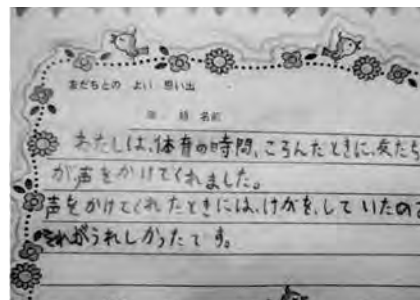 友だちとの よい 思い出
年 組 名前
わたしは、体育の時間、ころんだときに、友だち
が声をかけてくれました。
声をかけてくれたときには、けがを、していたので
それがうれしかったです。